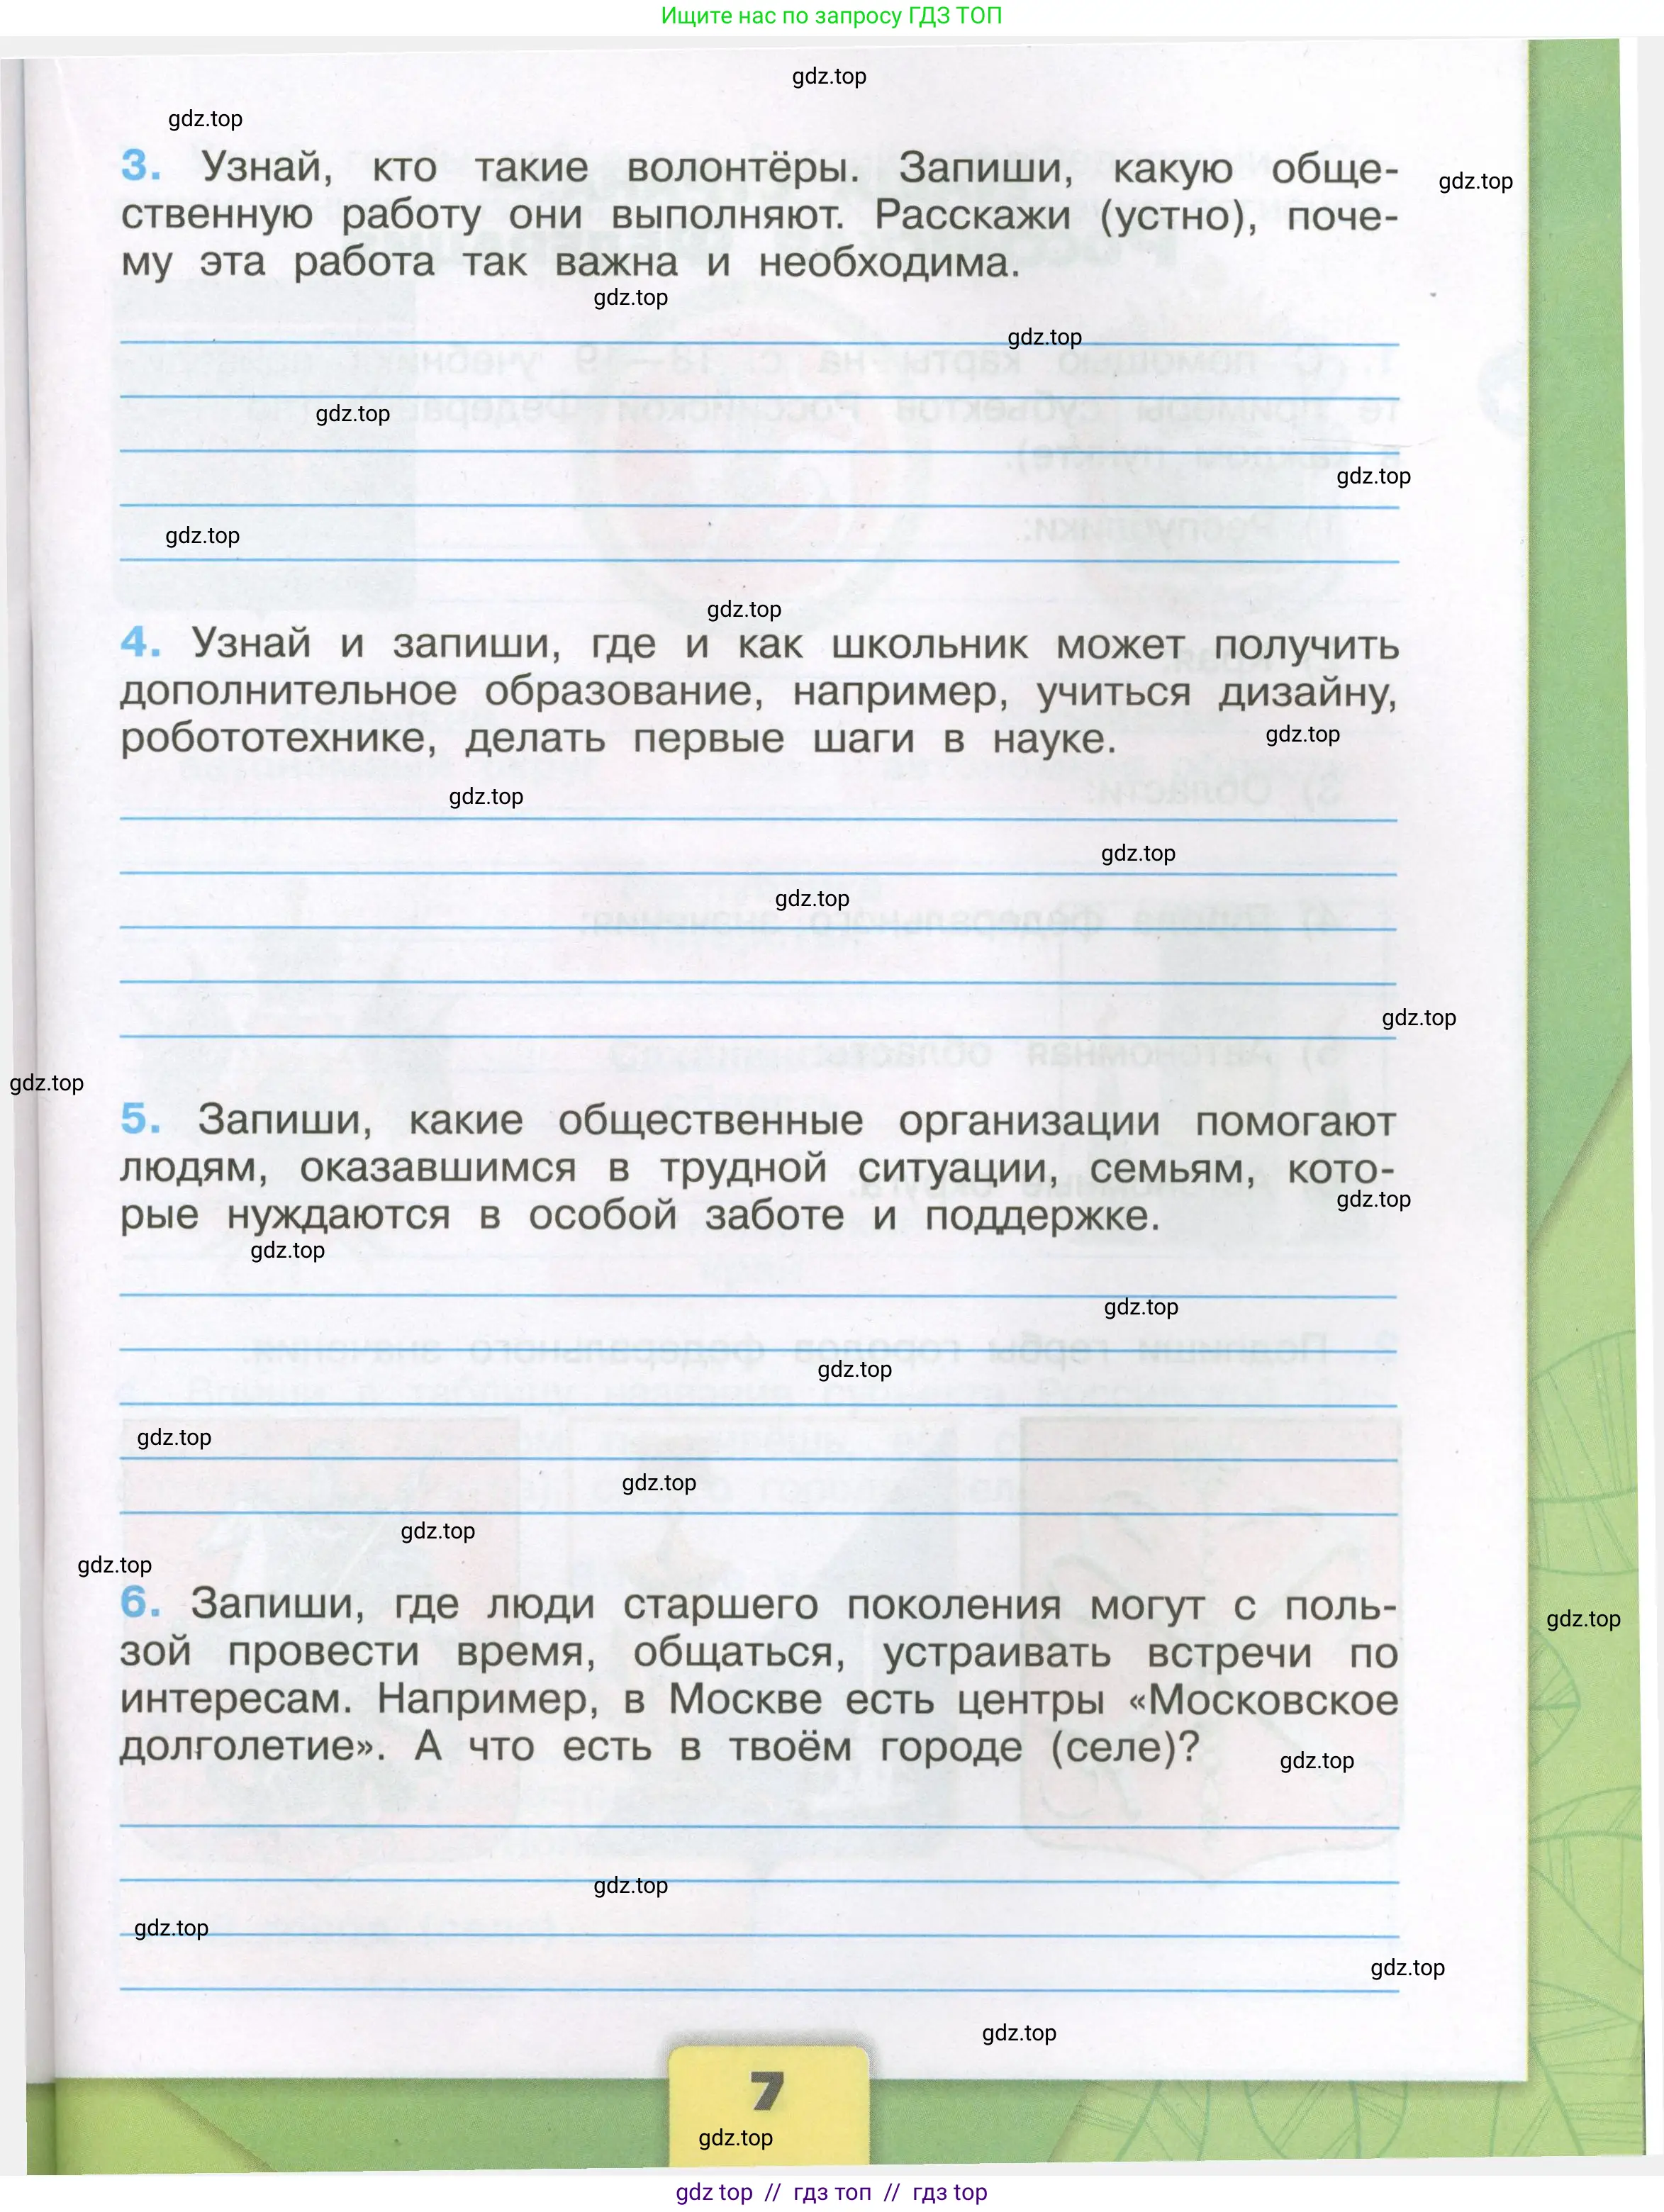 Ищите нас по запросу ГДЗ ТОП
gdz.top
gdz.top
3. Узнай, кто такие волонтёры. Запиши, какую обще-
gdz.top
ственную работу они выполняют. Расскажи (устно), поче-
му эта работа так важна и необходима.
gdz.top
gdz.top
gdz.top
gdz.top
gdz.top
gdz.top
4. Узнай и запиши, где и как школьник может получить
дополнительное образование, например, учиться дизайну,
робототехнике, делать первые шаги в науке.
gdz.top
gdz.top
gdz.top
gdz.top
gdz.top
gdz.top
5. Запиши, какие общественные организации помогают
людям, оказавшимся в трудной ситуации, семьям, кото-
gdz.top
рые нуждаются в особой заботе и поддержке.
gdz.top
gdz.top
gdz.top
gdz.top
gdz.top
gdz.top
gdz.top
6. Запиши, где люди старшего поколения могут с поль-
gdz.top
зой провести время, общаться, устраивать встречи по
интересам. Например, в Москве есть центры «Московское
долголетие». А что есть в твоём городе (селе)?
gdz.top
gdz.top
gdz.top
gdz.top
gdz.top
7
gdz.top
gdz top // гдз топ // гдз top